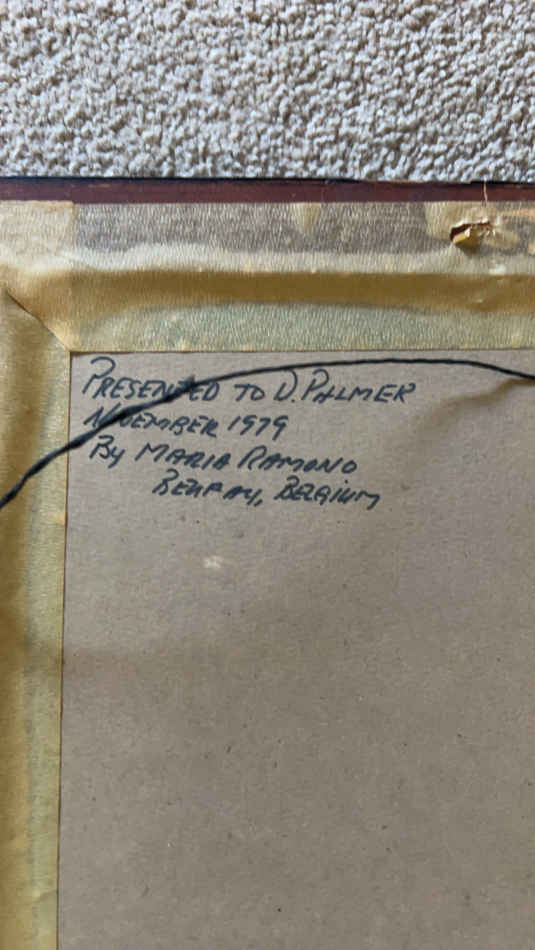 PRESENTED TO D. PALMER
NOVEMBER 1979
By MARIA RAMONO
BELGIUM